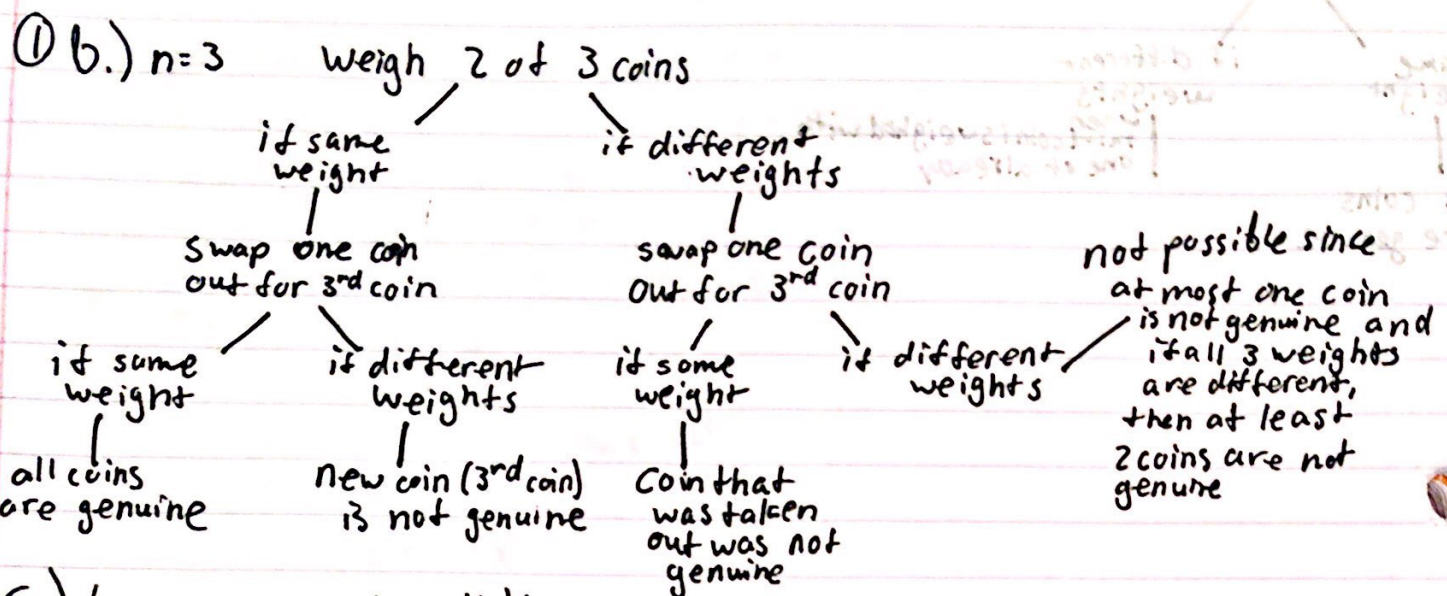 ① b.) n=3 weigh 2 of 3 coins
if same
weight
if different
weights
swap one coin
out for 3rd coin
swap one coin
out for 3rd coin
if same
weight
if different
weights
if same
weight
if different
weights
not possible since
at most one coin
is not genuine and
if all 3 weights
are different,
then at least
2 coins are not
genuine
all coins
are genuine
new coin (3rd coin)
is not genuine
coin that
was taken
out was not
genuine